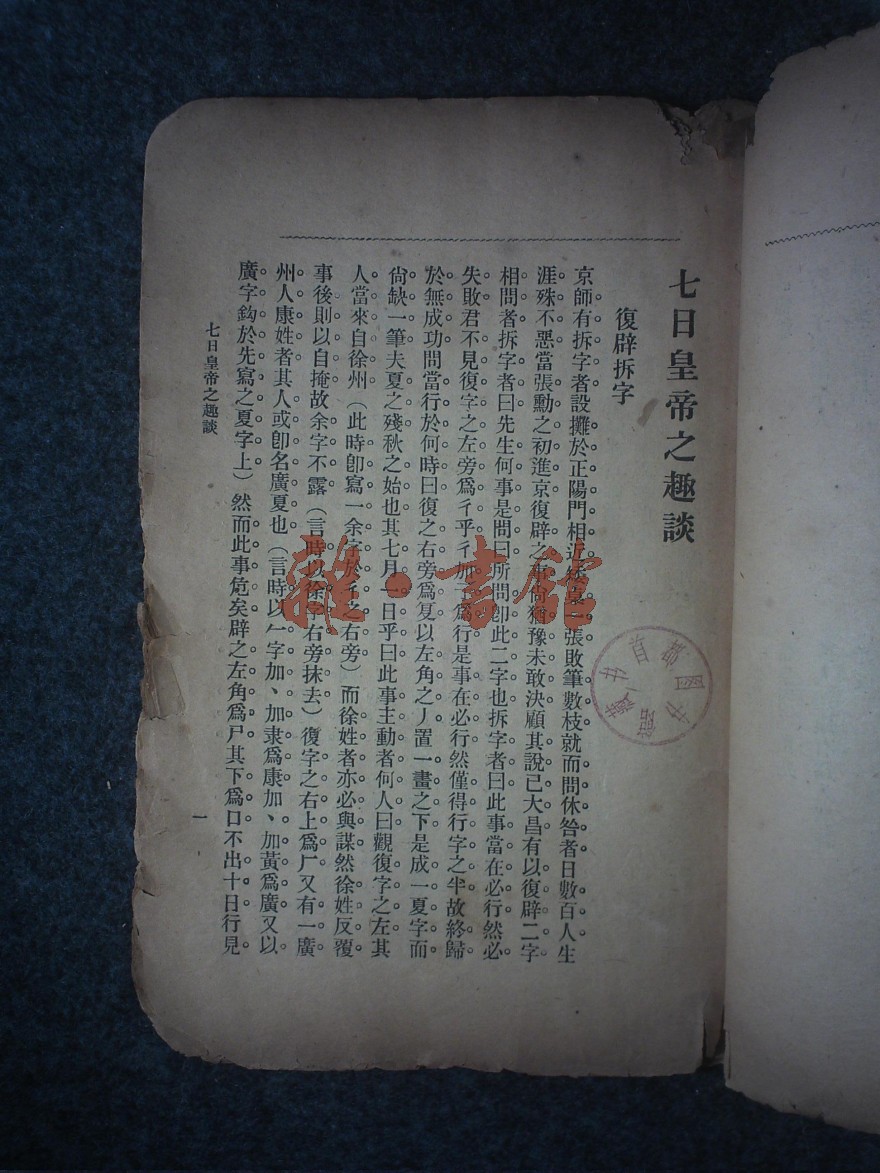 七日皇帝之趣談
復辟拆字
京師有拆字者設攤於正陽門相近 張敗筆數枝就而問休咎者日數百人生
涯殊不惡當張勳之初進京復辟之事尙猶豫未敢決顧其說已大昌有以復辟二字
相問者拆字者曰先生何事是問曰所問卽此二字也拆字者曰此事當在必行然必
失敗君不見復字之左旁爲彳乎彳加 爲行是事在必行然僅得行字之半故終歸
於無成功問當行於何時曰復之右旁爲复以左角之丿置一畫之下是成一夏字而
尙缺一筆夫夏之殘秋之始也其七月一日乎曰此事主動者何人曰觀復字之左其
人當來自徐州（此時卽寫一余字於彳之右旁）而徐姓者亦必與謀然徐姓反覆
事後則以自掩故余字不露（言時以徐字右旁抹去）復字之右上爲𠂉又有一廣
州人康姓者其人或卽名廣夏也（言時以𠂉字加、加隶爲康加、加黃爲廣又以
廣字鈎於先寫之夏字上）然而此事危矣辟之左角爲尸其下爲口不出十日行見
七日皇帝之趣談
一
雜·書館